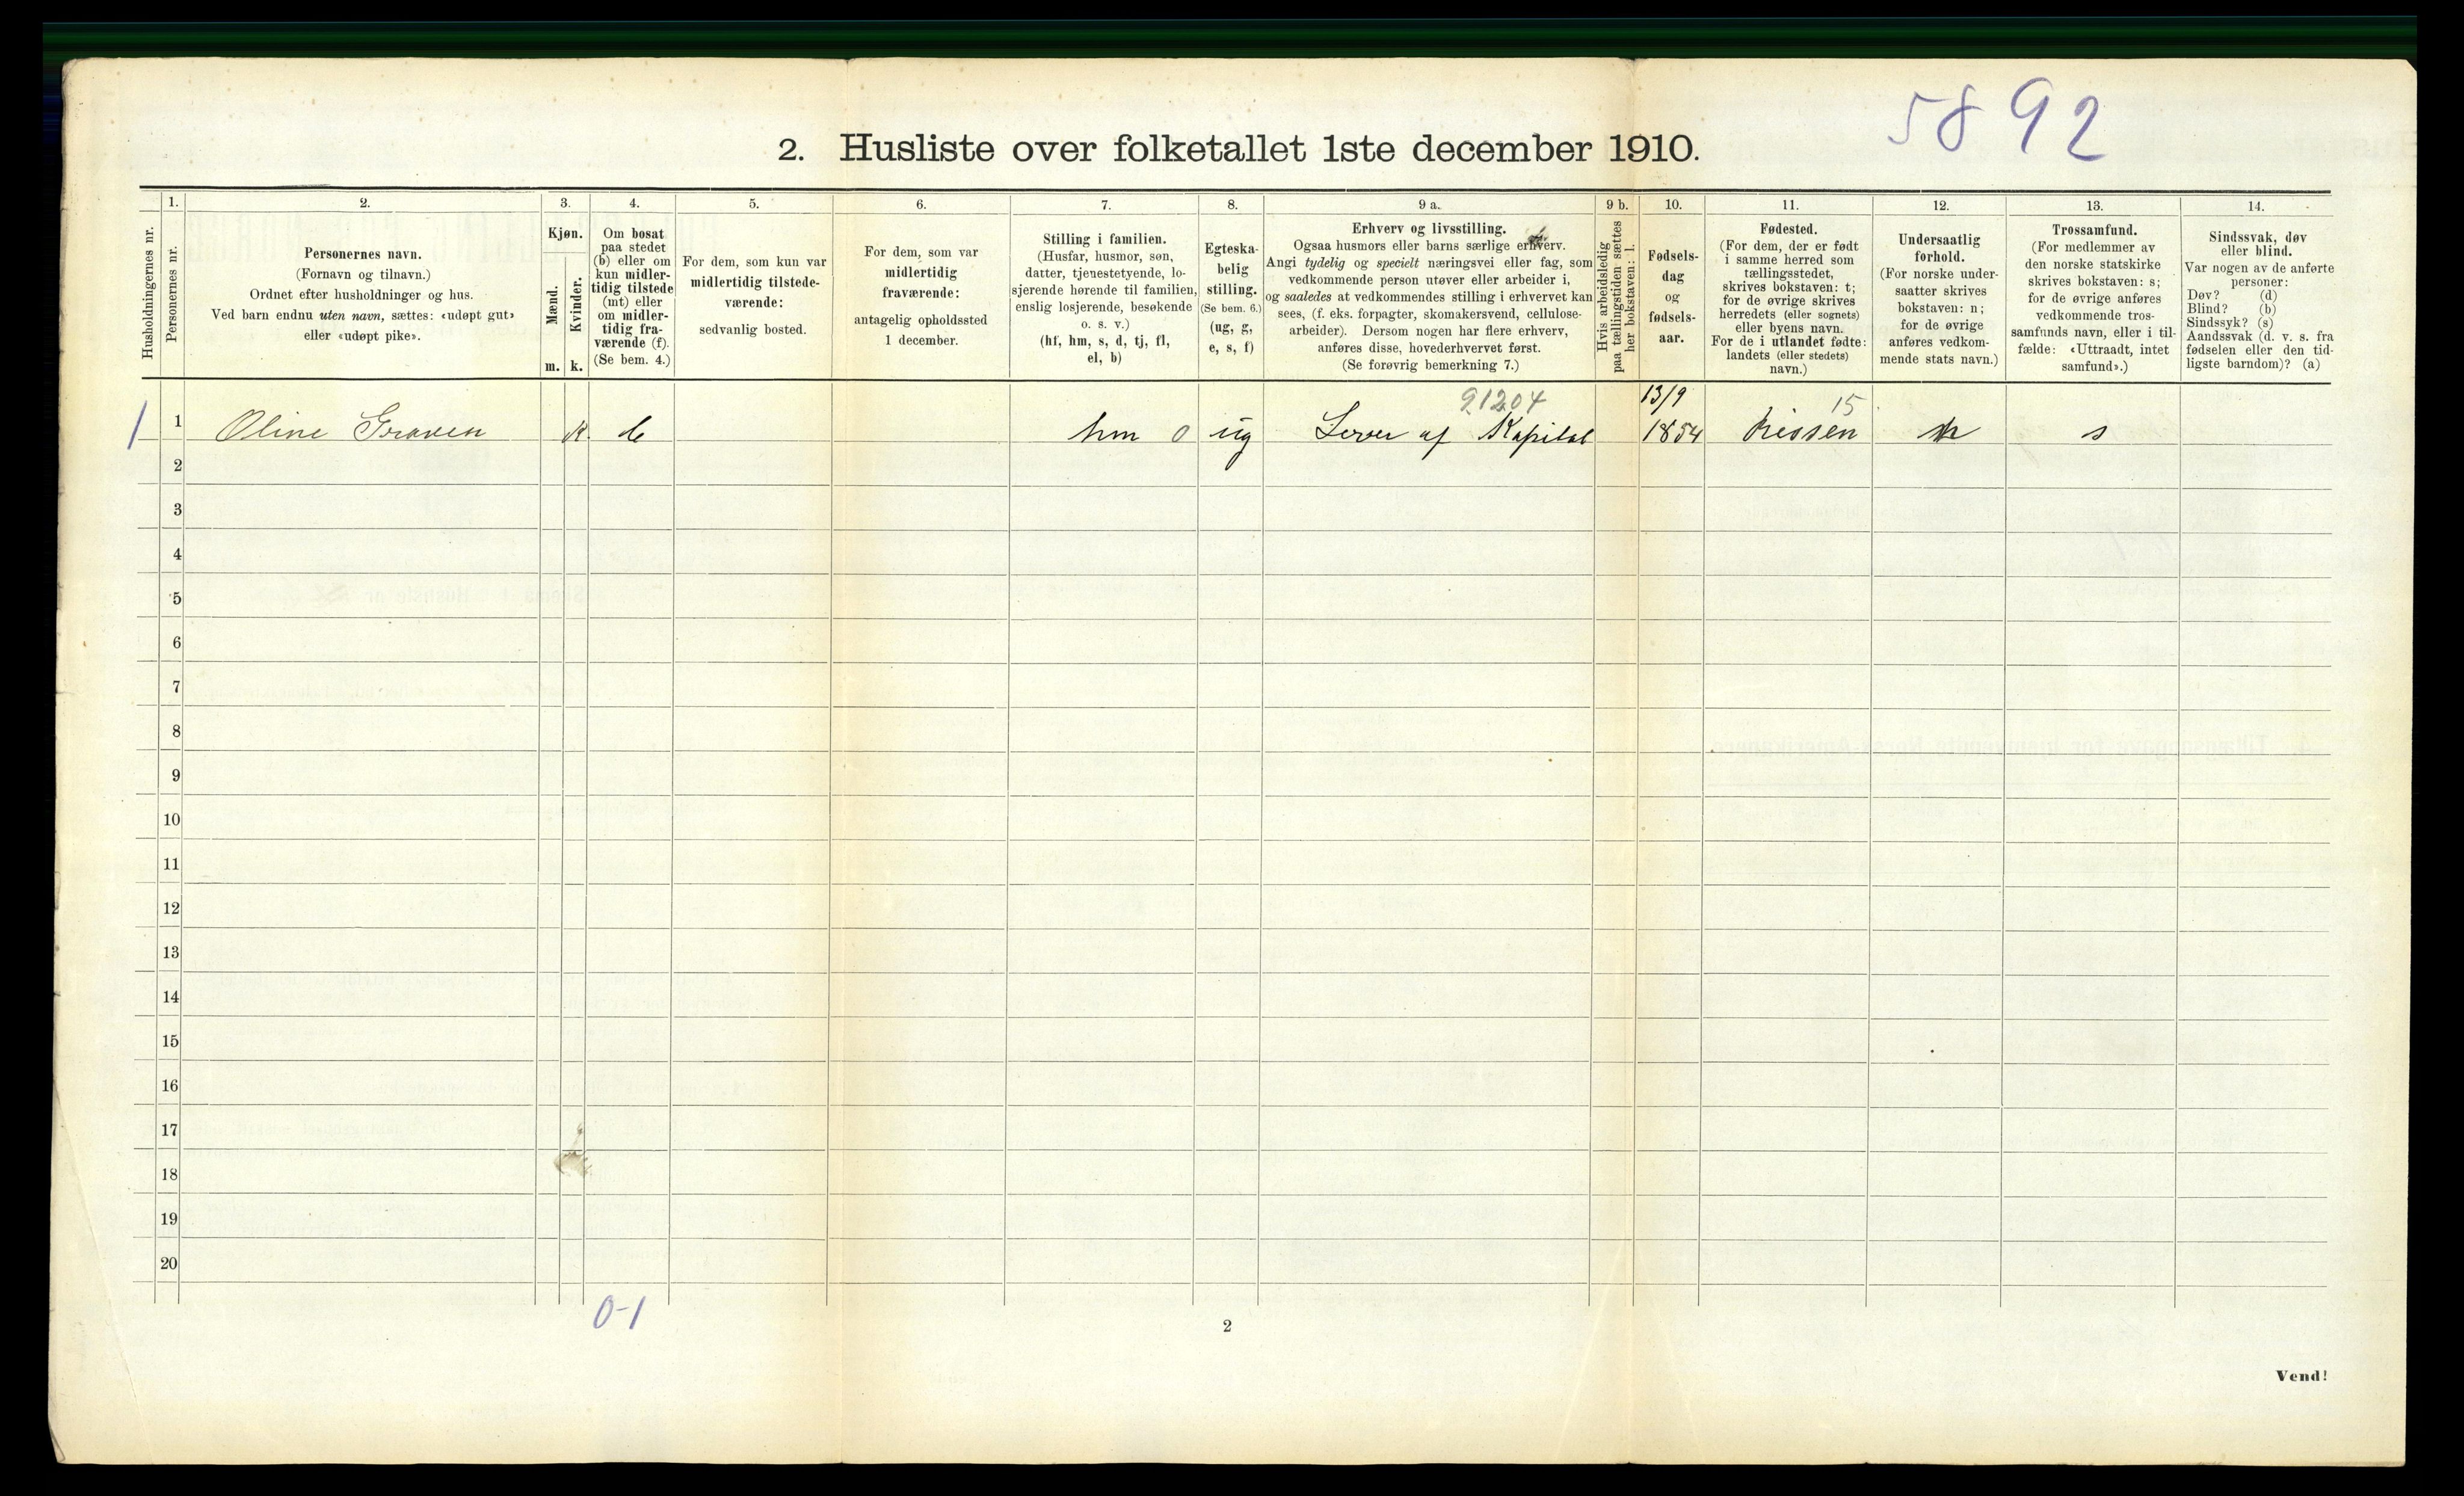 5892
2. Husliste over folketallet 1ste december 1910.
1. 2. 3. 4. 5. 6. 7. 8. 9 a. 9 b. 10. 11. 12. 13. 14.
Husholdningernes nr.
Personernes nr.
Personernes navn.
(Fornavn og tilnavn.)
Ordnet efter husholdninger og hus.
Ved barn endnu uten navn, sættes: «udøpt gut»
eller «udøpt pike».
Kjøn.
Mænd.
Kvinder.
m. k.
Om bosat
paa stedet
(b) eller om
kun midler-
tidig tilstede
(mt) eller
om midler-
tidig fra-
værende (f).
(Se bem. 4.)
For dem, som kun var
midlertidig tilstede-
værende:
sedvanlig bosted.
For dem, som var
midlertidig
fraværende:
antagelig opholdssted
1 december.
Stilling i familien.
(Husfar, husmor, søn,
datter, tjenestetyende, lo-
sjerende hørende til familien,
enslig losjerende, besøkende
o. s. v.)
(hf, hm, s, d, tj, fl,
el, b)
Egteska-
belig
stilling.
(Se bem. 6.)
(ug, g,
e, s, f)
Erhverv og livsstilling.
Ogsaa husmors eller barns særlige erhverv.
Angi tydelig og specielt næringsvei eller fag, som
vedkommende person utøver eller arbeider i,
og saaledes at vedkommendes stilling i erhvervet kan
sees, (f. eks. forpagter, skomakersvend, cellulose-
arbeider). Dersom nogen har flere erhverv,
anføres disse, hovederhvervet først.
(Se forøvrig bemerkning 7.)
Hvis arbeidsledig
paa tællingstiden sættes
her bokstaven: l.
Fødsels-
dag
og
fødsels-
aar.
Fødested.
(For dem, der er født
i samme herred som
tællingsstedet,
skrives bokstaven: t;
for de øvrige skrives
herredets (eller sognets)
eller byens navn.
For de i utlandet fødte:
landets (eller stedets)
navn.)
Undersaatlig
forhold.
(For norske under-
saatter skrives
bokstaven: n;
for de øvrige
anføres vedkom-
mende stats navn.)
Trossamfund.
(For medlemmer av
den norske statskirke
skrives bokstaven: s;
for de øvrige anføres
vedkommende tros-
samfunds navn, eller i til-
fælde: «Uttraadt, intet
samfund».)
Sindssvak, døv
eller blind.
Var nogen av de anførte
personer:
Døv? (d)
Blind? (b)
Sindssyk? (s)
Aandssvak (d. v. s. fra
fødselen eller den tid-
ligste barndom)? (a)
91204 13/9 15
1 1 Oline Graven k b hm 0 ug Lever af Kapital 1854 Rissen n s
2
3
4
5
6
7
8
9
10
11
12
13
14
15
16
17
18
19
20
0-1
2
Vend!